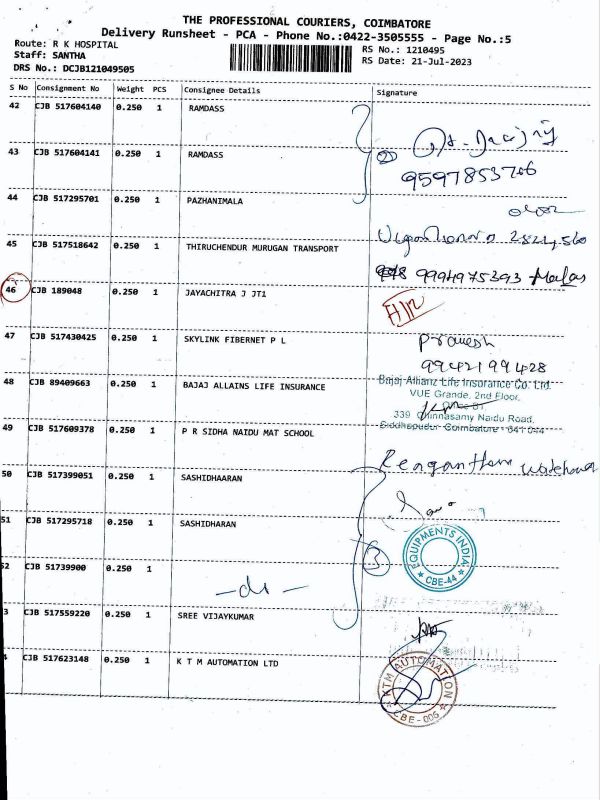 THE PROFESSIONAL COURIERS, COIMBATORE
Delivery Runsheet - PCA - Phone No.:0422-3505555 - Page No.:5
Route: R K HOSPITAL
Staff: SANTHA
DRS No.: DCJB121049505
RS No.: 1210495
RS Date: 21-Jul-2023
S No Consignment No Weight PCS Consignee Details Signature
42 CJB 517604140 0.250 1 RAMDASS
43 CJB 517604141 0.250 1 RAMDASS
② 9597853706
44 CJB 517295701 0.250 1 PAZHANIMALA
45 CJB 517518642 0.250 1 THIRUCHENDUR MURUGAN TRANSPORT
9994975393
46 CJB 189048 0.250 1 JAYACHITRA J JT1
47 CJB 517430425 0.250 1 SKYLINK FIBERNET P L
Pramesh
9942199428
48 CJB 89409663 0.250 1 BAJAJ ALLAINS LIFE INSURANCE
Bajaj Allianz Life Insurance Co. Ltd.
VUE Grande, 2nd Floor,
339 Chinnasamy Naidu Road,
Siddhapudur Coimbatore - 641 044
49 CJB 517609378 0.250 1 P R SIDHA NAIDU MAT SCHOOL
50 CJB 517399051 0.250 1 SASHIDHAARAN
51 CJB 517295718 0.250 1 SASHIDHARAN
③ EQUIPMENTS INDIA
CBE-44
52 CJB 51739900 0.250 1
-do-
3 CJB 517559220 0.250 1 SREE VIJAYKUMAR
CJB 517623148 0.250 1 K T M AUTOMATION LTD
KTM AUTOMATION
CBE-006